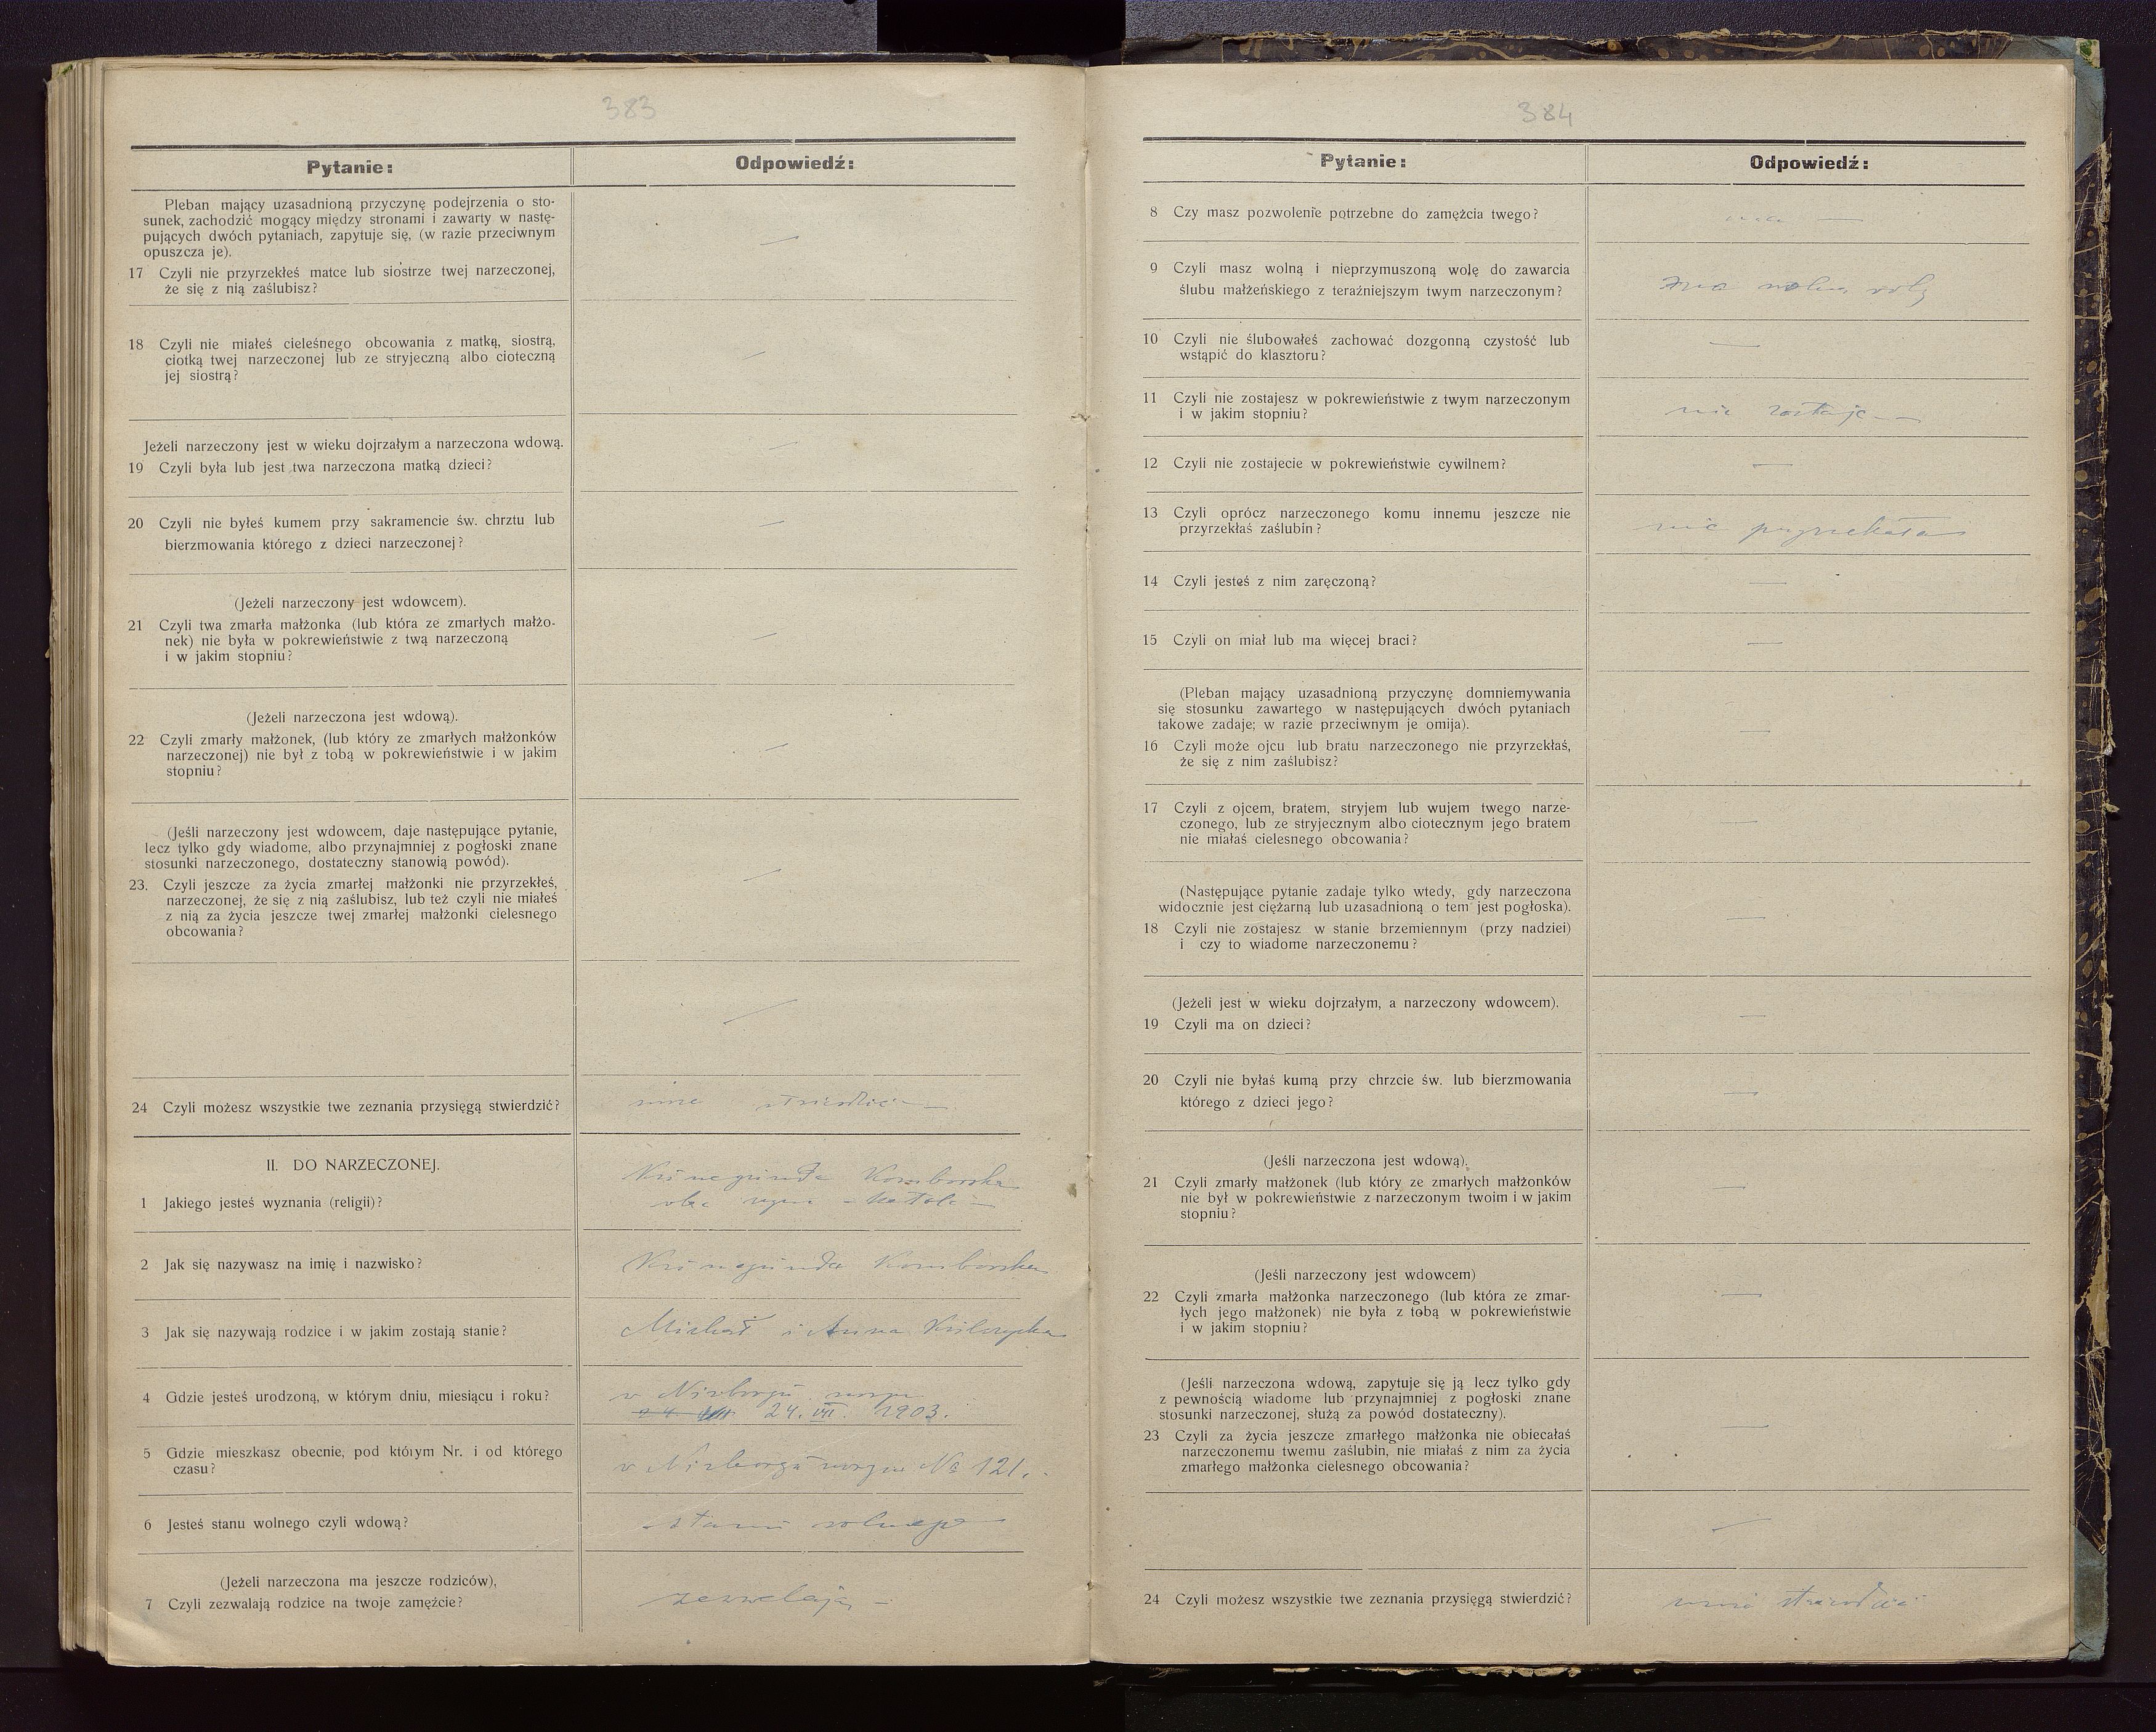 383
Pytanie:
Odpowiedź:
Pleban mający uzasadnioną przyczynę podejrzenia o sto-
sunek, zachodzić mogący między stronami i zawarty w nastę-
pujących dwóch pytaniach, zapytuje się, (w razie przeciwnym
opuszcza je).
17 Czyli nie przyrzekłeś matce lub siostrze twej narzeczonej,
że się z nią zaślubisz?
—
18 Czyli nie miałeś cieleśnego obcowania z matką, siostrą,
ciotką twej narzeczonej lub ze stryjeczną albo cioteczną
jej siostrą?
—
Jeżeli narzeczony jest w wieku dojrzałym a narzeczona wdową.
19 Czyli była lub jest twa narzeczona matką dzieci?
—
20 Czyli nie byłeś kumem przy sakramencie św. chrztu lub
bierzmowania którego z dzieci narzeczonej?
—
(Jeżeli narzeczony jest wdowcem).
21 Czyli twa zmarła małżonka (lub która ze zmarłych małżo-
nek) nie była w pokrewieństwie z twą narzeczoną
i w jakim stopniu?
—
(Jeżeli narzeczona jest wdową).
22 Czyli zmarły małżonek, (lub który ze zmarłych małżonków
narzeczonej) nie był z tobą w pokrewieństwie i w jakim
stopniu?
—
(Jeśli narzeczony jest wdowcem, daje następujące pytanie,
lecz tylko gdy wiadome, albo przynajmniej z pogłoski znane
stosunki narzeczonego, dostateczny stanowią powód).
23. Czyli jeszcze za życia zmarłej małżonki nie przyrzekłeś,
narzeczonej, że się z nią zaślubisz, lub też czyli nie miałeś
z nią za życia jeszcze twej zmarłej małżonki cielesnego
obcowania?
—
—
24 Czyli możesz wszystkie twe zeznania przysięgą stwierdzić?
stwierdzić —
II. DO NARZECZONEJ.
1 Jakiego jesteś wyznania (religii)?
Kunegunda Komborska
obr. rzym - katol. —
2 Jak się nazywasz na imię i nazwisko?
Kunegunda Komborska
3 Jak się nazywają rodzice i w jakim zostają stanie?
Michał i Anna
4 Gdzie jesteś urodzoną, w którym dniu, miesiącu i roku?
w Nizborgu nowym
24. VII. 1903.
5 Gdzie mieszkasz obecnie, pod którym Nr. i od którego
czasu?
w Nizborgu nowym No 121.
6 Jesteś stanu wolnego czyli wdową?
stanu wolnego
(Jeżeli narzeczona ma jeszcze rodziców),
7 Czyli zezwalają rodzice na twoje zamężcie?
zezwalają —
384
Pytanie:
Odpowiedź:
8 Czy masz pozwolenie potrzebne do zamężcia twego?
ma —
9 Czyli masz wolną i nieprzymuszoną wolę do zawarcia
ślubu małżeńskiego z teraźniejszym twym narzeczonym?
ma wolną wolę
10 Czyli nie ślubowałeś zachować dozgonną czystość lub
wstąpić do klasztoru?
—
11 Czyli nie zostajesz w pokrewieństwie z twym narzeczonym
i w jakim stopniu?
nie zostaje —
12 Czyli nie zostajecie w pokrewieństwie cywilnem?
—
13 Czyli oprócz narzeczonego komu innemu jeszcze nie
przyrzekłaś zaślubin?
nie przyrzekała
14 Czyli jesteś z nim zaręczoną?
—
15 Czyli on miał lub ma więcej braci?
—
(Pleban mający uzasadnioną przyczynę domniemywania
się stosunku zawartego w następujących dwóch pytaniach
takowe zadaje; w razie przeciwnym je omija).
16 Czyli może ojcu lub bratu narzeczonego nie przyrzekłaś,
że się z nim zaślubisz?
—
17 Czyli z ojcem, bratem, stryjem lub wujem twego narze-
czonego, lub ze stryjecznym albo ciotecznym jego bratem
nie miałaś cielesnego obcowania?
—
(Następujące pytanie zadaje tylko wtedy, gdy narzeczona
widocznie jest ciężarną lub uzasadnioną o tem jest pogłoska).
18 Czyli nie zostajesz w stanie brzemiennym (przy nadziei)
i czy to wiadome narzeczonemu?
—
(Jeżeli jest w wieku dojrzałym, a narzeczony wdowcem).
19 Czyli ma on dzieci?
—
20 Czyli nie byłaś kumą przy chrzcie św. lub bierzmowania
którego z dzieci jego?
—
(Jeśli narzeczona jest wdową).
21 Czyli zmarły małżonek (lub który ze zmarłych małżonków
nie był w pokrewieństwie z narzeczonym twoim i w jakim
stopniu?
—
(Jeśli narzeczony jest wdowcem)
22 Czyli zmarła małżonka narzeczonego (lub która ze zmar-
łych jego małżonek) nie była z tobą w pokrewieństwie
i w jakim stopniu?
—
(Jeśli narzeczona wdową, zapytuje się ją lecz tylko gdy
z pewnością wiadome lub przynajmniej z pogłoski znane
stosunki narzeczonej, służą za powód dostateczny).
23 Czyli za życia jeszcze zmarłego małżonka nie obiecałaś
narzeczonemu twemu zaślubin, nie miałaś z nim za życia
zmarłego małżonka cielesnego obcowania?
—
—
24 Czyli możesz wszystkie twe zeznania przysięgą stwierdzić?
stwierdzić